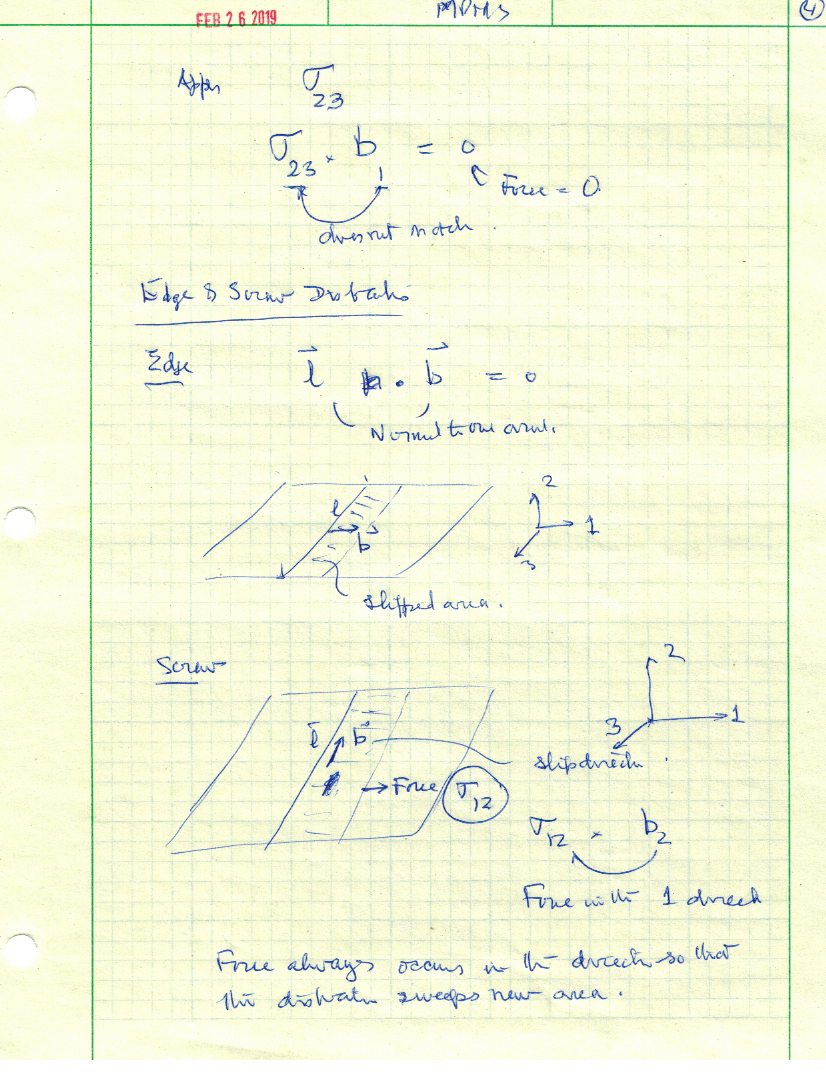 FEB 26 2019
4
Apply σ23
σ23 × b1 = 0
Force = 0
does not match.
Edge & Screw Dislocations
Edge l · b = 0
Normal to one another.
2
l
1
b
3
slipped area.
Screw
2
l b
1
3
slip direction.
→ Force σ12
σ12 × b2
Force in the 1 direct
Force always occurs in the direction so that
the dislocation sweeps new area.